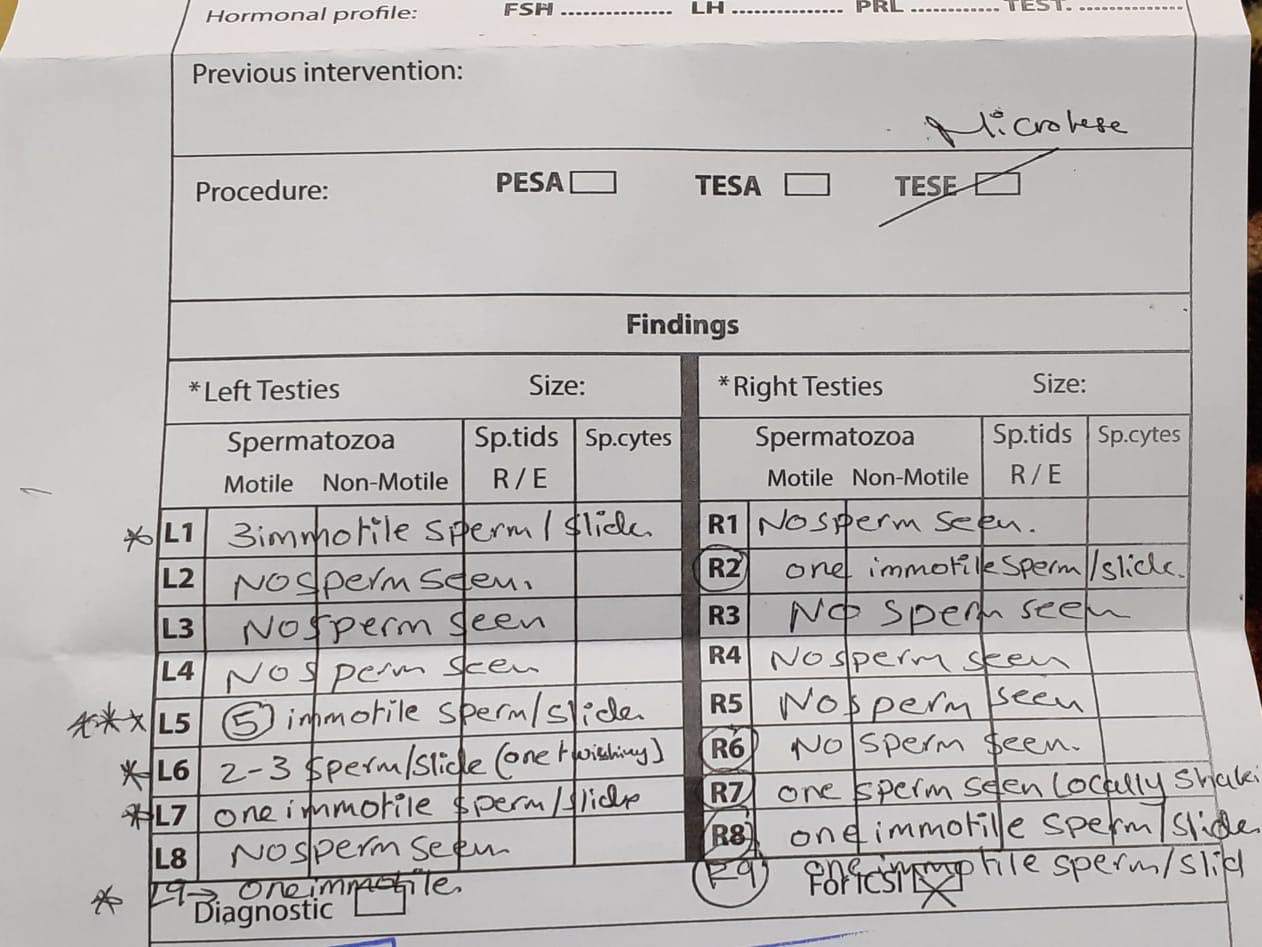 Hormonal profile: FSH ............... LH ............... PRL ............ TEST. ..............
Previous intervention:
Microtese
Procedure: PESA TESA TESE
Findings
*Left Testies Size: *Right Testies Size:
Spermatozoa Sp.tids Sp.cytes Spermatozoa Sp.tids Sp.cytes
Motile Non-Motile R / E Motile Non-Motile R / E
* L1 3 immotile sperm / slide. R1 No sperm seen.
L2 No sperm seen. R2 one immotile sperm/slide.
L3 No sperm seen R3 No sperm seen
L4 No sperm seen R4 No sperm seen
*** L5 5 immotile sperm/slide. R5 No sperm seen
* L6 2-3 sperm/slide (one twishing) R6 No sperm seen.
* L7 one immotile sperm/slide R7 one sperm seen Locally
L8 No sperm seen R8 one immotile sperm/slide
* L9→ one immotile. R9 one immotile sperm/slid
Diagnostic For ICSI